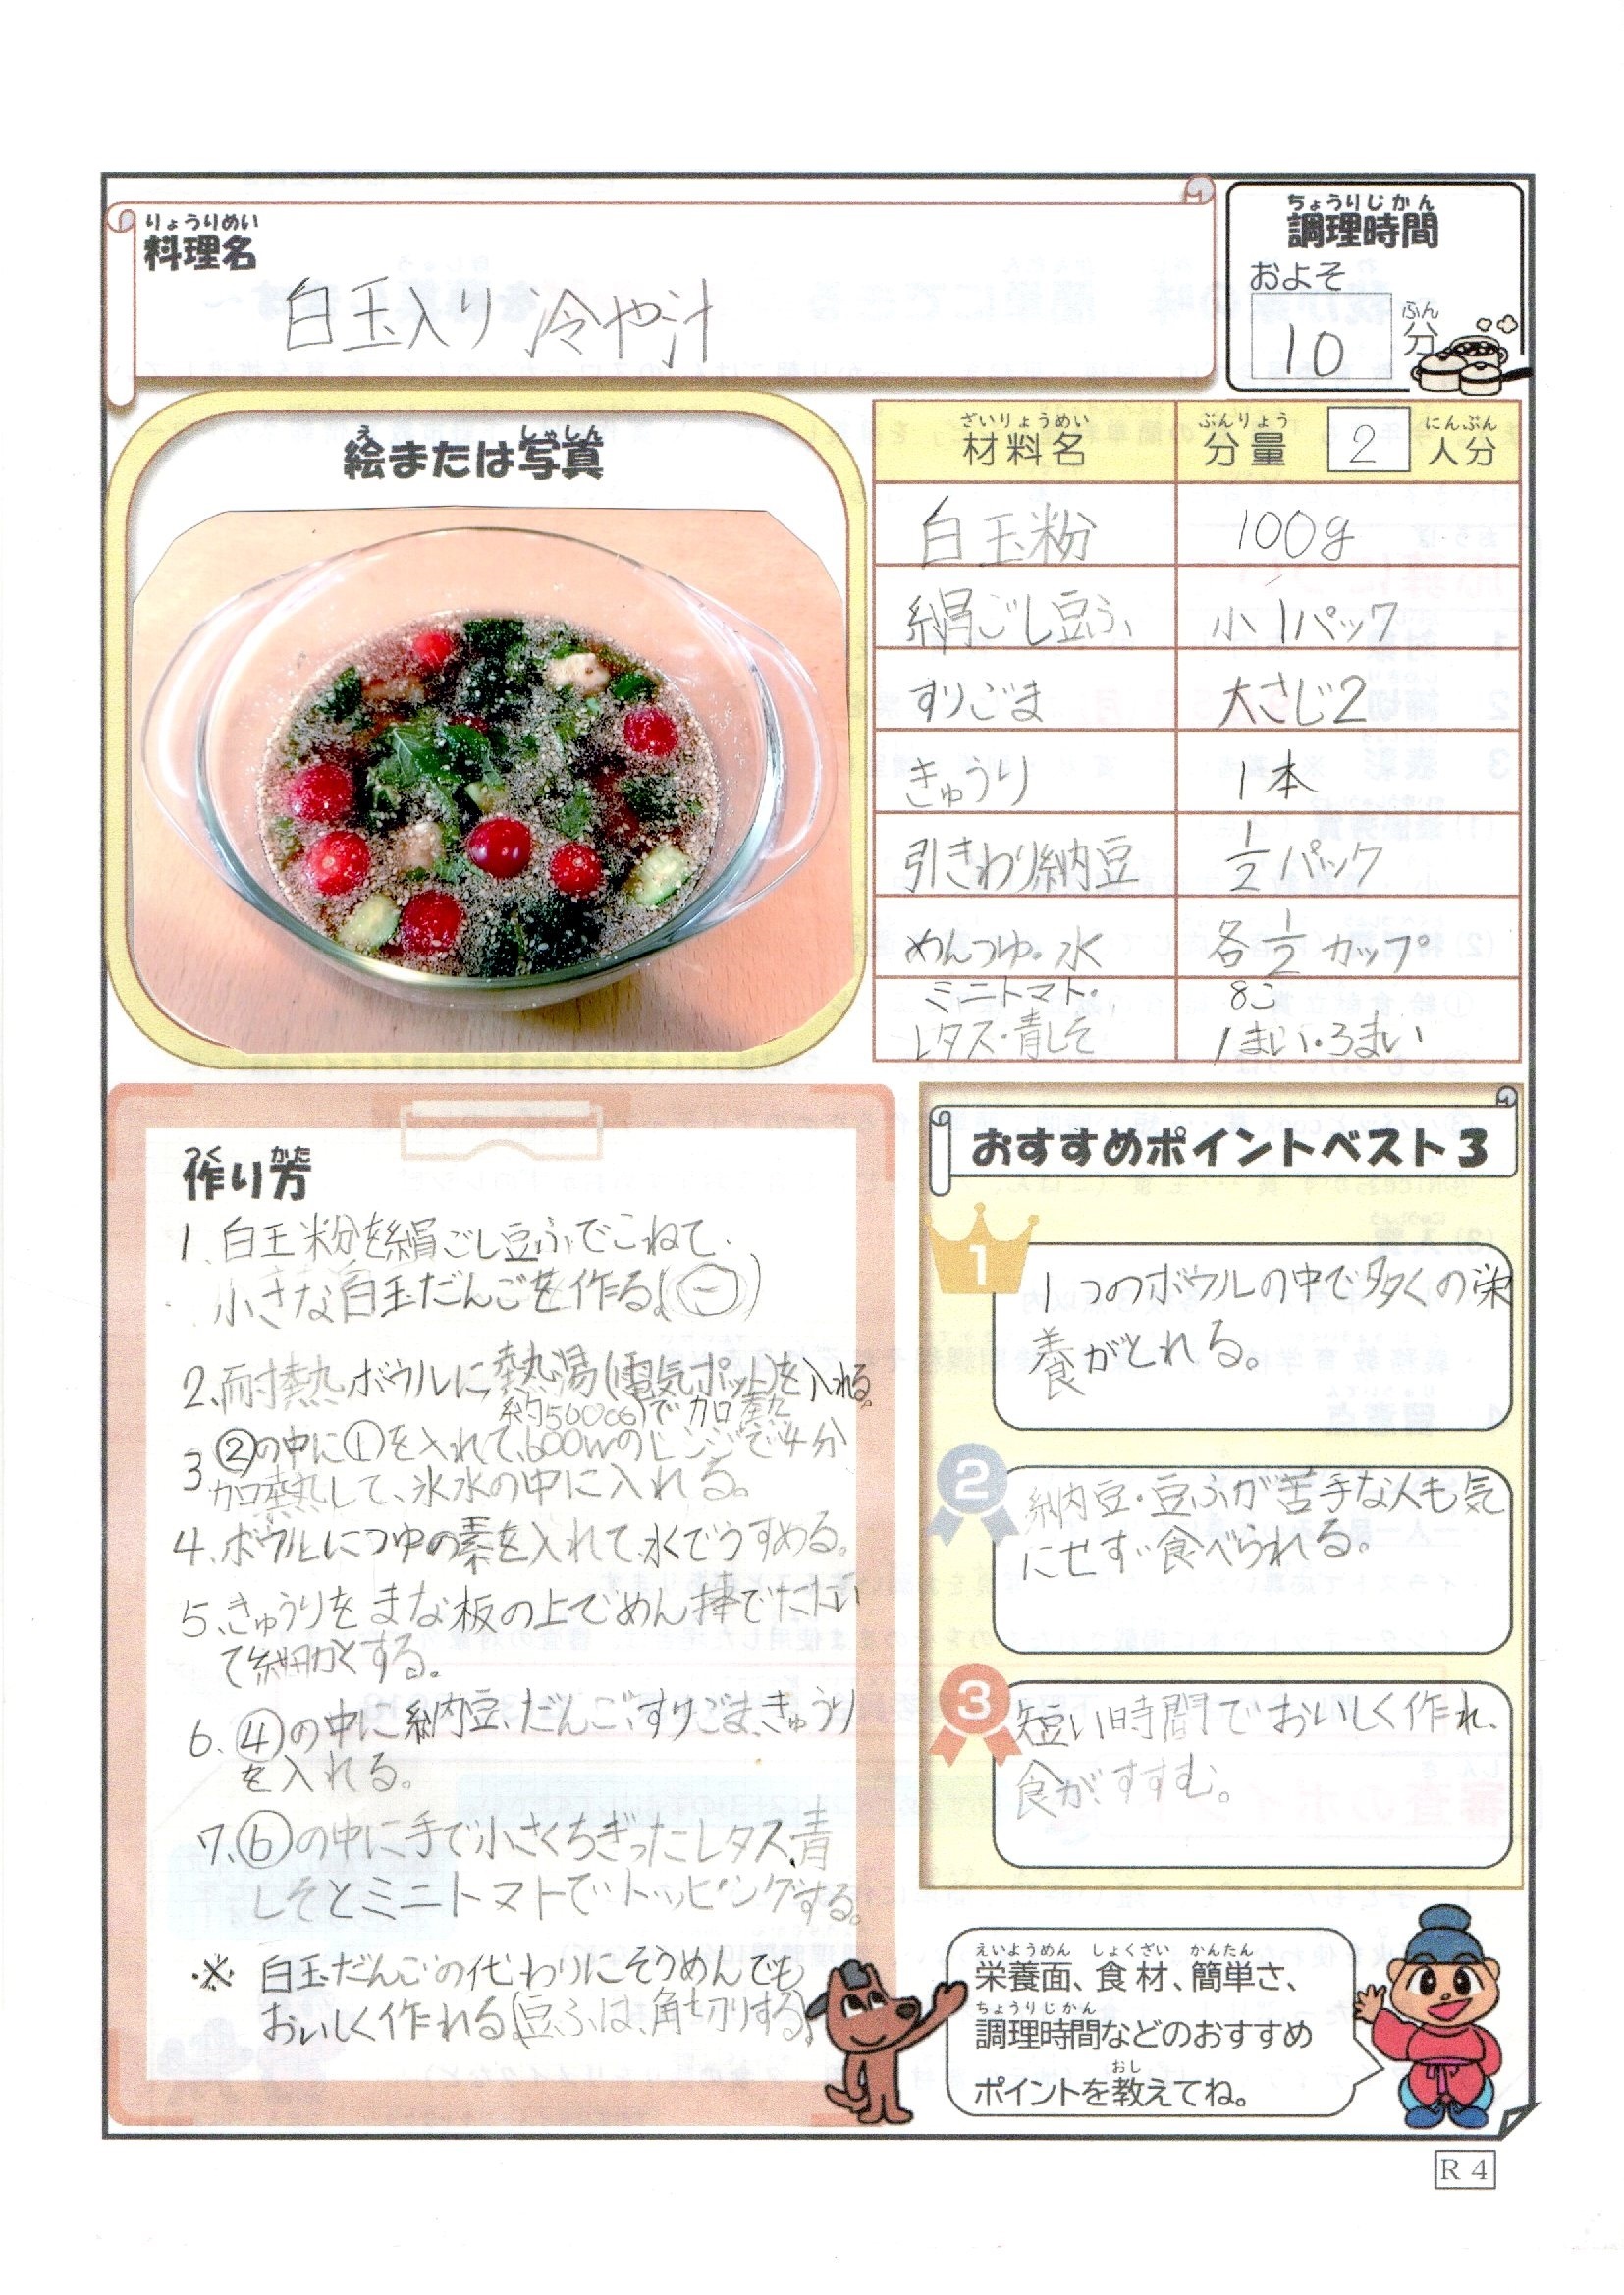 りょうりめい
料理名
白玉入り冷や汁
ちょうりじかん
調理時間
およそ
10
ふん
分
え しゃしん
絵または写真
ざいりょうめい
材料名
ぶんりょう にんぶん
分量 2 人分
白玉粉 100g
絹ごし豆ふ 小1パック
すりごま 大さじ2
きゅうり 1本
引きわり納豆 1/2パック
めんつゆ・水 各1/2カップ
ミニトマト・ 8こ
レタス・青しそ 1まい・3まい
つく かた
作り方
1、白玉粉を絹ごし豆ふでこねて、
小さな白玉だんごを作る。
2、耐熱ボウルに熱湯(電気ポット)を入れる。
約500cc)で加熱
3 ②の中に①を入れて、600Wのレンジで4分
加熱して、氷水の中に入れる。
4、ボウルにつゆの素を入れて、水でうすめる。
5、きゅうりをまな板の上でめん棒でたたい
て細かくする。
6、④の中に納豆、だんご、すりごま、きゅうり
を入れる。
7、⑥の中に手で小さくちぎったレタス、青
しそとミニトマトでトッピングする。
※ 白玉だんごの代わりにそうめんでも
おいしく作れる(豆ふは、角切りする)
おすすめポイントベスト3
1
1つのボウルの中で多くの栄
養がとれる。
2
納豆・豆ふが苦手な人も気
にせず食べられる。
3
短い時間でおいしく作れ、
食がすすむ。
えいようめん しょくざい かんたん
栄養面、食材、簡単さ、
ちょうりじかん
調理時間などのおすすめ
おし
ポイントを教えてね。
R4